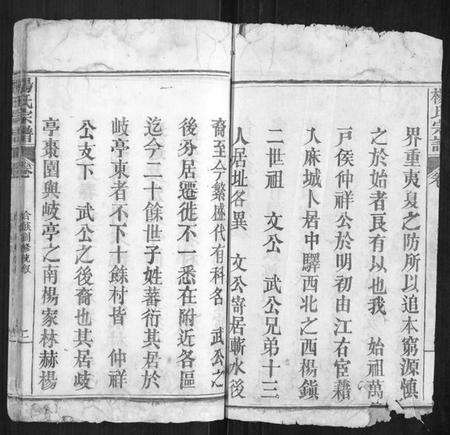 楊氏宗譜
卷
界重夷夏之防所以追本窮源慎
之於始者良有以也我 始祖萬
戶侯仲祥公於明初由江右宦籍
入麻城卜居中驛西北之西楊鎮
二世祖 文公 武公兄弟十三
人居址各異 文公寄居蘄水後
裔至今繁盛代有科名 武公之
後分居遷徙不一悉在附近各區
迄今二十餘世子姓蕃衍其居於
岐亭東者不下十餘村皆 仲祥
公支下 武公之後裔也其居歧
亭棗園與岐亭之南楊家林赫楊
楊氏宗譜
卷